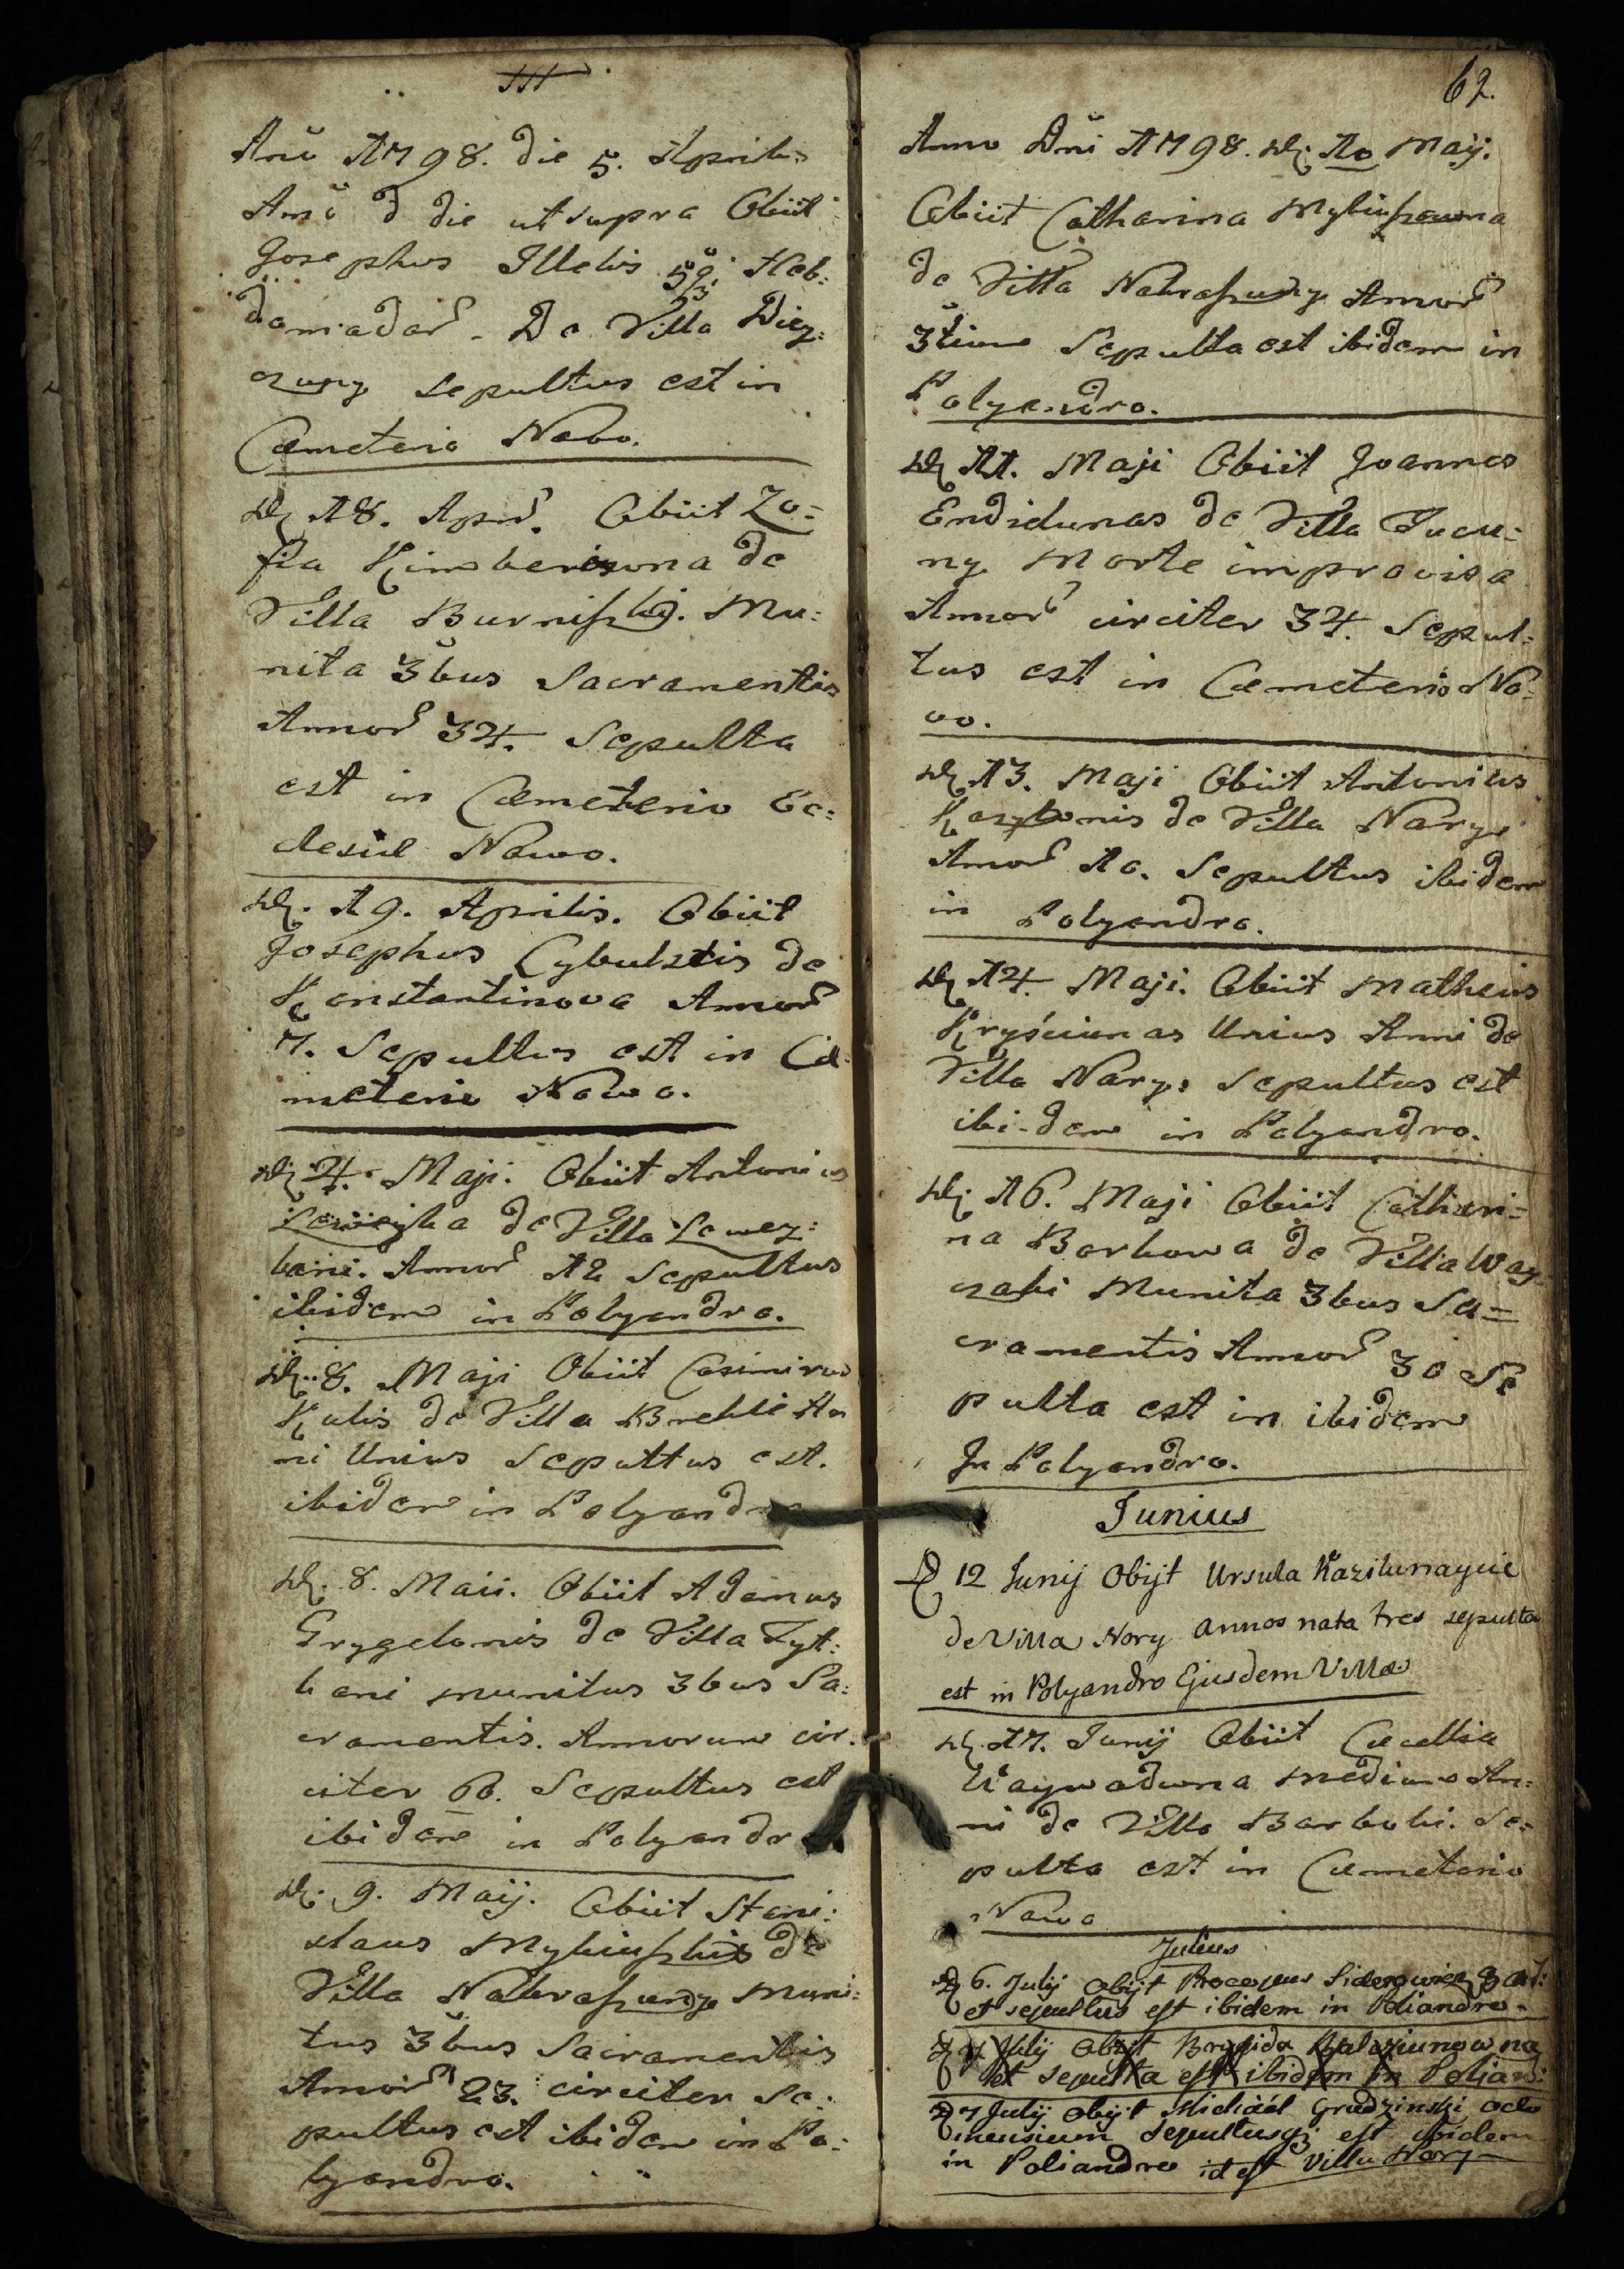 Anō 1798. die 5. Aprilis
Anō d die ut supra Obiit
Josephus Illekis Heb:
domadar̃. De Villa Diez:
guny sepultus est in
Cæmeterio Novo.
D. 18. Apr̃. Obiit Zo=
fia de
Villa Burniszki. Mu:
nita 3bus Sacramentis
Annor̃ 34. Sepulta
est in Cæmeterio Ec:
clesiæ Nowo.
D. 19. Aprilis. Obiit
Josephus Cybulskis de
Konstantinova Annor̃
7. Sepultus est in Cæ
meterio Nowo.
D. 4. Maji. Obiit Antonius
de Villa
Annor̃ 12 Sepultus
ibidem in Polyandro.
D. 8. Maji Obiit Casimirus
Kulis de Villa An
ni Unius Sepultus est.
ibidem in Polyandro
D. 8. Maii. Obiit Adamus
Grygelonis de Villa Zyt:
kani munitus 3bus Sa:
cramentis. Annorum cir:
citer 60. Sepultus est
ibidem in Polyandro
D. 9. Maij. Obiit Stani:
slaus de
Villa muni:
tus 3bus Sacramentis
Annor̃ 23. circiter Se:
pultus est ibidem in Po:
lyandro.
62.
Anno Dñi 1798. D. 10 Maij.
Obiit Catharina
de Villa Annor̃
3tium Sepulta est ibidem in
Polyandro.
D. 11. Maji Obiit Joannes
Endidunas de Villa Jucu:
ny Morte improvisa
Annor̃ circiter 34. Sepul:
tus est in Cæmeterio No:
vo.
D. 13. Maji Obiit Antonius
de Villa Nory
Annor̃ 10. Sepultus ibidem
in Polyandro.
D. 14. Maji. Obiit Matheus
Kryściunas Unius Anni de
Villa Nory. Sepultus est
ibi-dem in Polyandro.
D. 16. Maji Obiit Cathari=
na Borkowa de Villa Way
Munita 3bus Sa=
cramentis Annor̃ 30 Se
pulta est in ibidem
In Polyandro.
Junius
D 12 Junij Obijt Ursula
de Villa Nory annos nata tres sepulta
est in Polyandro Ejusdem Villæ
D. 17. Junij Obiit Cæcillia
Waywoduna medium An:
ni de Villa Se:
pulta est in Cæmeterio
Nowo
Julius
D 6. Julij Obijt
et sepultus est ibidem in Poliandro.
D 7 Julij Obijt Brygida
et sepulta est ibidem in Polian:
D 7 Julij Obijt Michaël Grudzinski octo
mensium sepultusq; est ibidem
in Poliandro id est Villa Nory